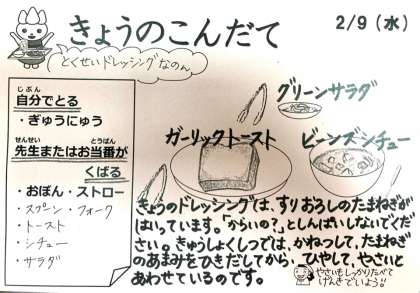 きょうのこんだて
2/9（水）
とくせいドレッシングなのん
じぶん
自分でとる
・ぎゅうにゅう
せんせい とうばん
先生またはお当番が
くばる
・おぼん・ストロー
・スプーン・フォーク
・トースト
・シチュー
・サラダ
グリーンサラダ
ガーリックトースト
ビーンズシチュー
きょうのドレッシングは、すりおろしのたまねぎが
はいっています。「からいの?」としんぱいしないでくだ
さい。きゅうしょくしつでは、かねつして、たまねぎ
のあまみをひきだしてから、ひやして、やさいと
あわせているのです。
やさいもしっかりたべて
げんきでいよう!!